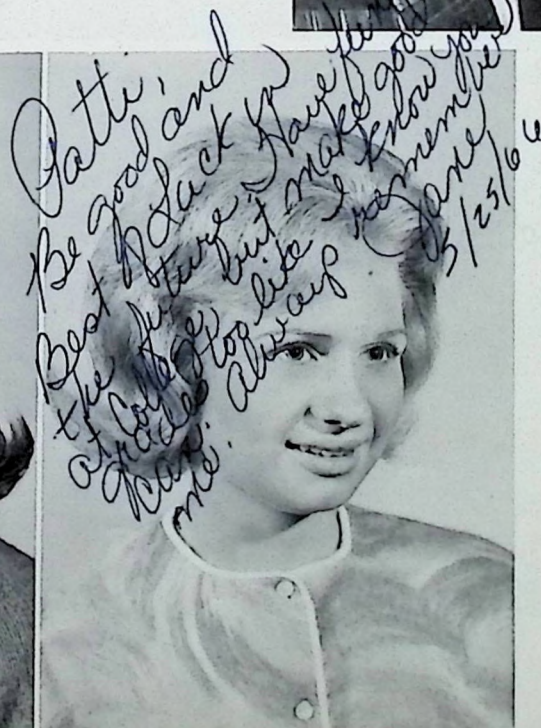 Patti,
Be good and
Best of Luck in
the future. Have fun
at College but make good
grades too like I know you
can. Always remember
me.
Jane
5/25/66